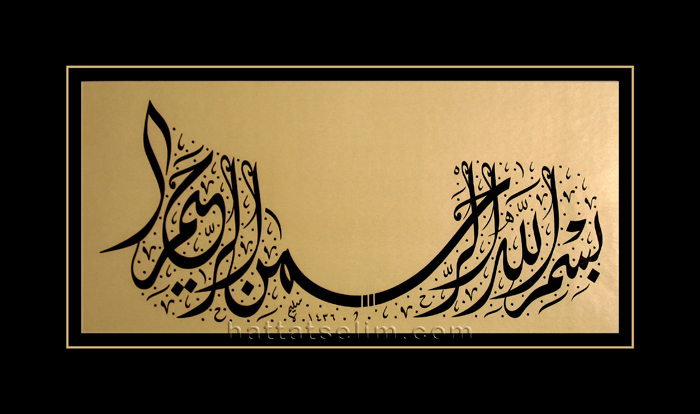 بسم الله الرحمن الرحيم
سليم ١٤٣٦
hattatselim.com